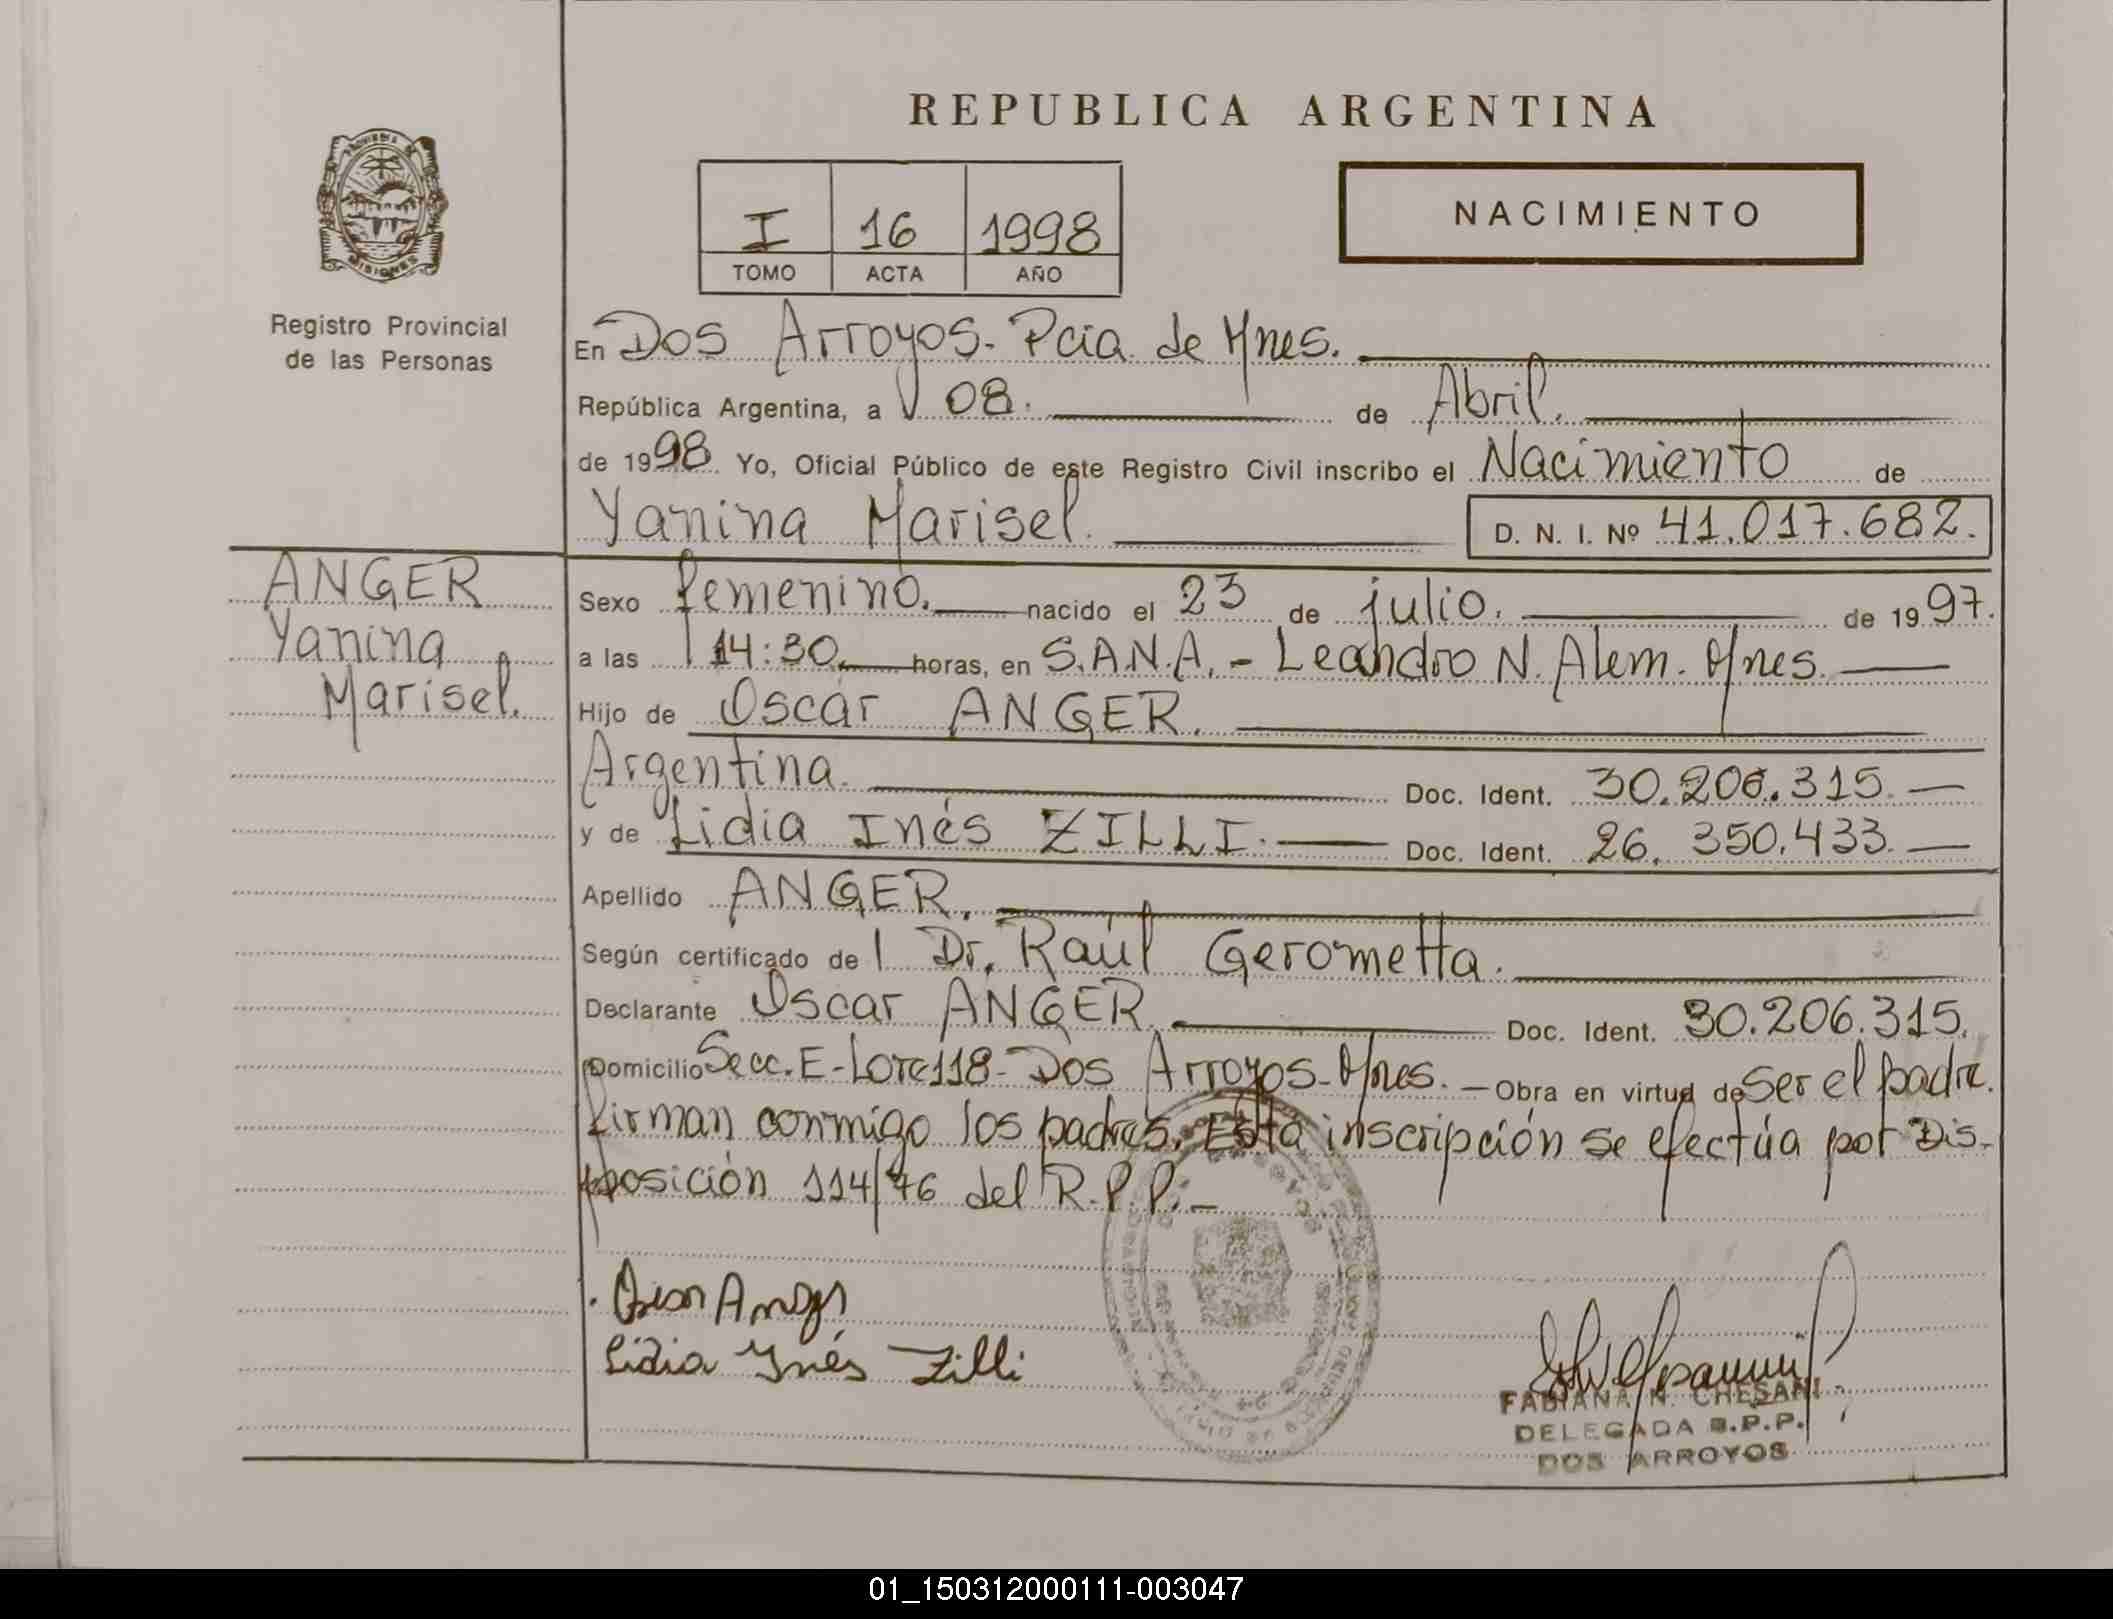 REPUBLICA ARGENTINA
PROVINCIA DE
MISIONES
I 16 1998
TOMO ACTA AÑO
NACIMIENTO
Registro Provincial
de las Personas
En Dos Arroyos - Pcia de Mnes.
República Argentina, a 08. de Abril.
de 1998 Yo, Oficial Público de este Registro Civil inscribo el Nacimiento de
Yanina Marisel. D. N. I. Nº 41.017.682.
ANGER
Yanina
Marisel.
Sexo femenino. nacido el 23 de julio. de 1997.
a las 14:30. horas, en S.A.N.A. - Leandro N. Alem. Mnes.
Hijo de Oscar ANGER.
Argentina. Doc. Ident. 30.206.315.
y de Lidia Inés ZILLI. Doc. Ident. 26.350.433.
Apellido ANGER.
Según certificado de Dr. Raúl Gerometta.
Declarante Oscar ANGER. Doc. Ident. 30.206.315.
Domicilio Secc. E - Lote 118 - Dos Arroyos - Mnes. - Obra en virtud de Ser el padre.
firman conmigo los padres. Esta inscripción se efectúa por Dis-
posición 114/76 del R.P.P. -
Oscar Anger
Lidia Ynés Zilli
FABIANA N. CHESANI
DELEGADA R.P.P.
DOS ARROYOS
01_150312000111-003047